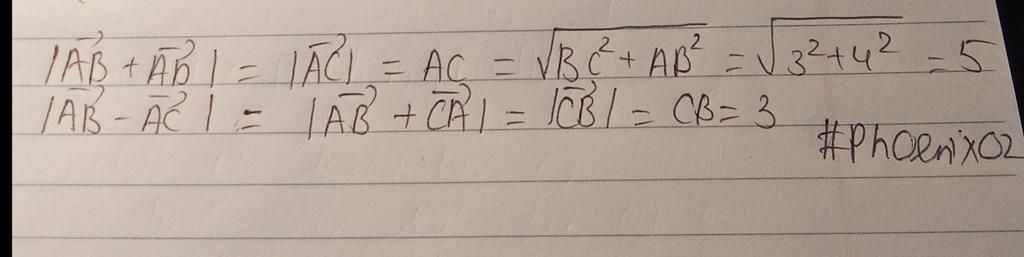 |AB⃗ + AD⃗| = |AC⃗| = AC = √(BC² + AB²) = √(3² + 4²) = 5
|AB⃗ - AC⃗| = |AB⃗ + CA⃗| = |CB⃗| = CB = 3
#PhOenixO2